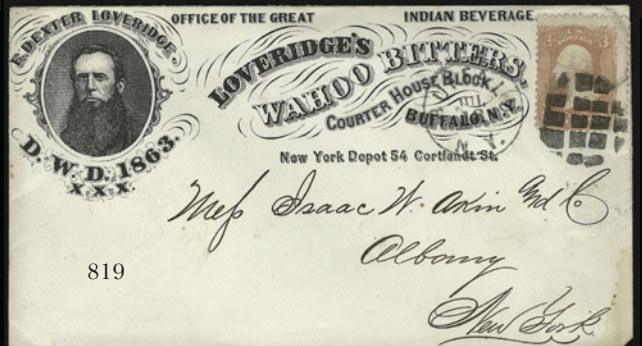 E. DEXTER LOVERIDGE
D. W. D. 1863.
X.X.X.
OFFICE OF THE GREAT INDIAN BEVERAGE
LOVERIDGE'S
WAHOO BITTERS,
COURTER HOUSE BLOCK,
BUFFALO, N.Y.
New York Depot 54 Cortlandt St.
3 3
N.Y.
Mess Isaac W. Akin
Albany
New York.
819